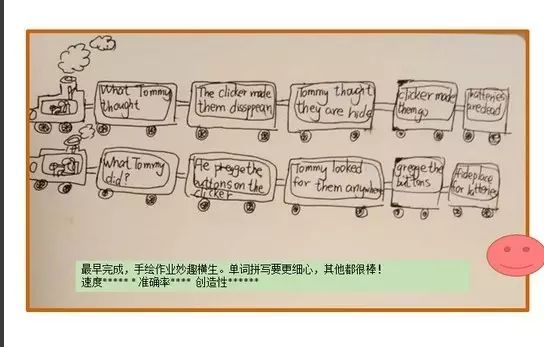 What Tommy
thought
The clicker made
them dissppean
Tommy thought
they are hide
clicker made
them go
batteries
are dead
What Tommy
did?
He pregge the
buttons on the
clicker
Tommy looked
for them
gregge the
buttons
for batteries
最早完成，手绘作业妙趣横生。单词拼写要更细心，其他都很棒！
速度***** * 准确率**** 创造性******